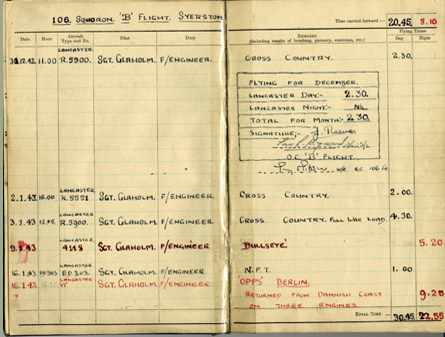 106. SQUADRON. 'B' FLIGHT. SYERSTON
Time carried forward:— 20.45 8.10
Date Hour Aircraft Type and No. Pilot Duty REMARKS Flying Times
(Including results of bombing, gunnery, exercises, etc.) Day Night
LANCASTER.
12.42 11.00 R.5900. SGT. GLAHOLM. F/ENGINEER. CROSS COUNTRY. 2.30.
FLYING FOR DECEMBER.
LANCASTER DAY:- 2.30.
LANCASTER NIGHT:- NIL
TOTAL FOR MONTH:- 2.30.
SIGNATURE:-
O.C. 'B' FLIGHT.
LANCASTER.
2.1.43 16.00 SGT. GLAHOLM. F/ENGINEER. CROSS COUNTRY. 2.00.
LANCASTER.
3.1.43 R.5900. SGT. GLAHOLM. F/ENGINEER. CROSS COUNTRY. FULL WAR LOAD. 4.30.
LANCASTER
9.1.43 SGT. GLAHOLM. F/ENGINEER 'BULLSEYE' 5.20
LANCASTER
16.1.43 ED.303. SGT. GLAHOLM. F/ENGINEER. N.F.T. 1.00.
LANCASTER 'OPPS' BERLIN.
16.1.43 SGT. GLAHOLM. F/ENGINEER. RETURNED FROM DANNISH COAST 9.25
ON THREE ENGINES.
TOTAL TIME 30.45 22.55